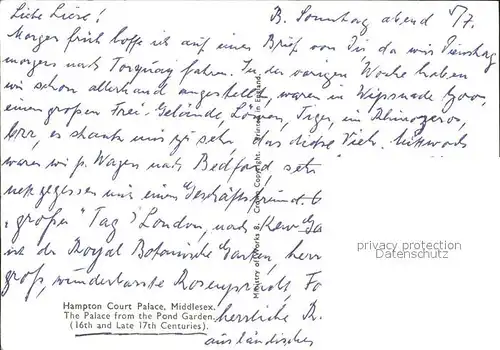 B. Sonntag abend 5/7.
Liebe Liese!
Morgen früh hoffe ich auf einen Brief von Dir, da wir Dienstag
morgens nach Torquay fahren. In der vorigen Woche haben
wir schon allerhand angestellt, waren in Wipsnade Zoo,
einem großen Frei-Gelände, Löwen, Tiger, ein Rhinozeros,
brr, es stank mir zu sehr, das dicke Vieh.
waren wir p. Wagen nach Bedford, sehr
nett gegessen mit einem Geschäftsfreund.
großer "Tag" London, nach Kew-Ga
ist der Royal Botanische Garten, herr
groß, wunderbarste Rosenpracht, Fo
herrliche R.
ausländischer
Hampton Court Palace, Middlesex.
The Palace from the Pond Garden.
(16th and Late 17th Centuries).
Ministry of Works 8. Crown Copyright. Printed in England.
privacy protection
Datenschutz